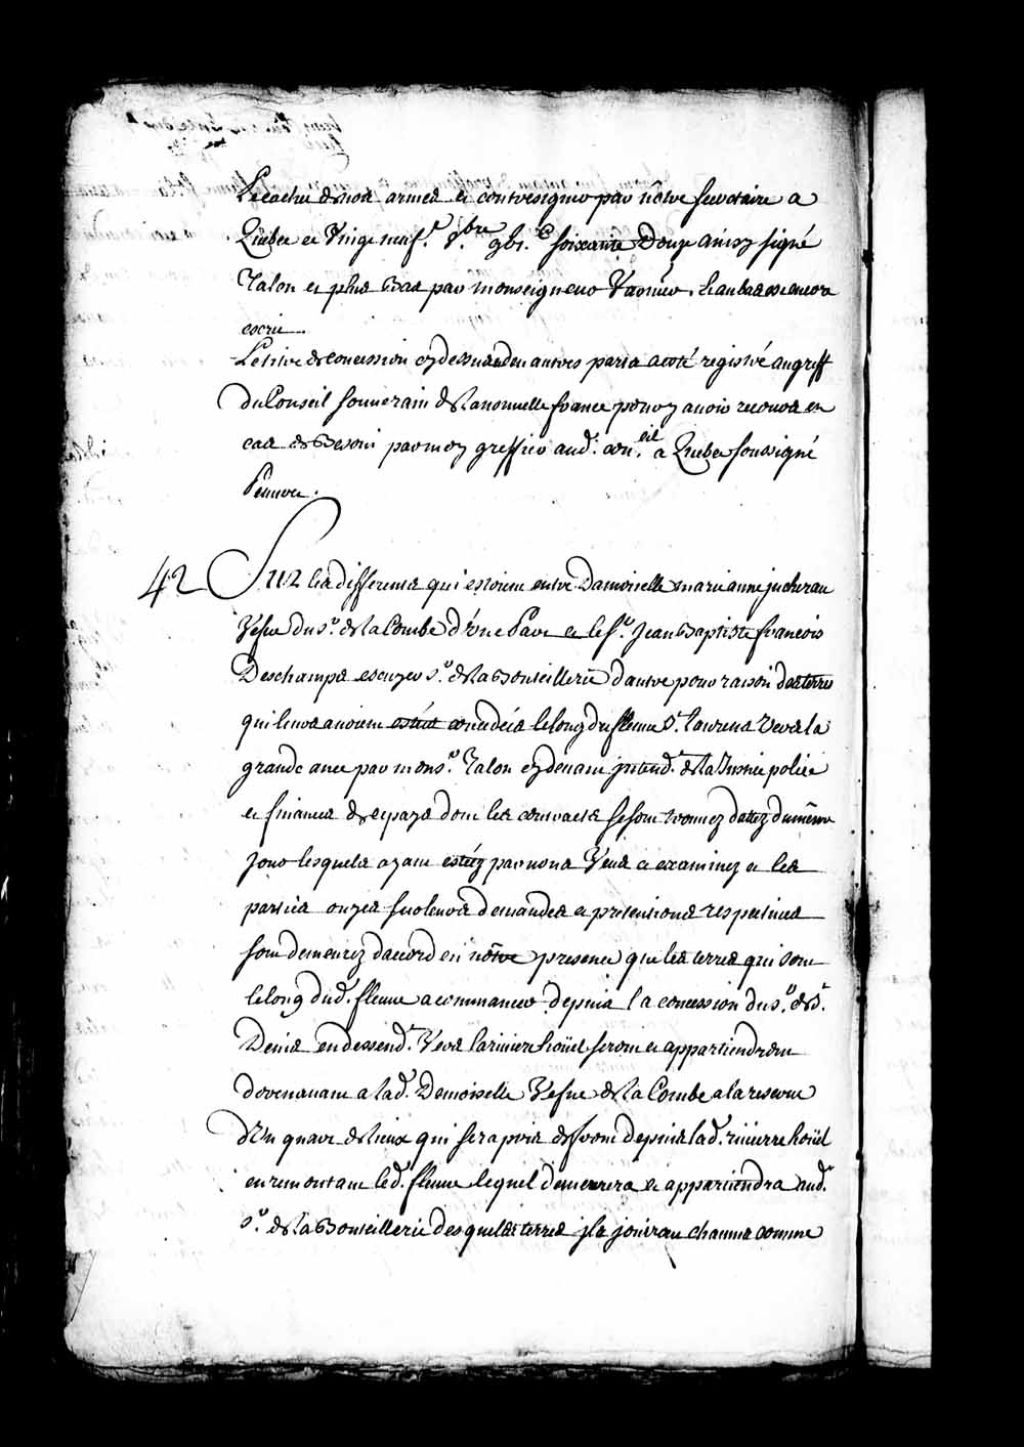 Le cachet de nos armes et contresigner par nôtre secretaire a
Quebec ce Vingt neuf.e 8.bre gbi.C soixante Douze ainsy signé
Talon et plus Bas par monseigneur Varnier. Et au bas est encore
escrit.
Le titre de concession cy dessus et des autres parts a esté registré au greff
Du Conseil souverain de la nouuelle france pour y auoir recours en
cas de Besoin par moy greffier aud: con.eil a Quebec soussigné
Peuuret.
42 Sur les differents qui estoient entre Damoiselle marie anne juchereau
Vefue du S.r de la Combe d'Vne Part et le S.r Jean Baptiste francois
Deschamps escuyer S.r de la Bouteillerie d'autre pour raison des terres
qui leurs auoient estées concedées le long du fleuue S.t Laurens Vers la
grande ance par mons.r Talon cy deuant intend.t de la Justice police
et finances de ce pays dont les contracts se sont trouuez datez du même
jour lesquels ayant estéz par nous Veus et examinez et les
parties ouyes sur leurs demandes et pretensions respectiues
sont demeurez d'accord en nôtre presence que les terres qui sont
le long dud. fleuue a commancer depuis la concession du S.r de S.t
Denis en dessend.t Vers la riuiere hoüel seront et appartiendront
dorenauant a lad. Demoiselle Vefue de la Combe a la reserue
d'Vn quart de lieux qui sera pris de front depuis lad. riuierre hoüel
en remontant led. fleuue lequel demeurera et appartiendra aud.
S.r de la Bouteillerie desquelles terres jls joüiront chacuns comme